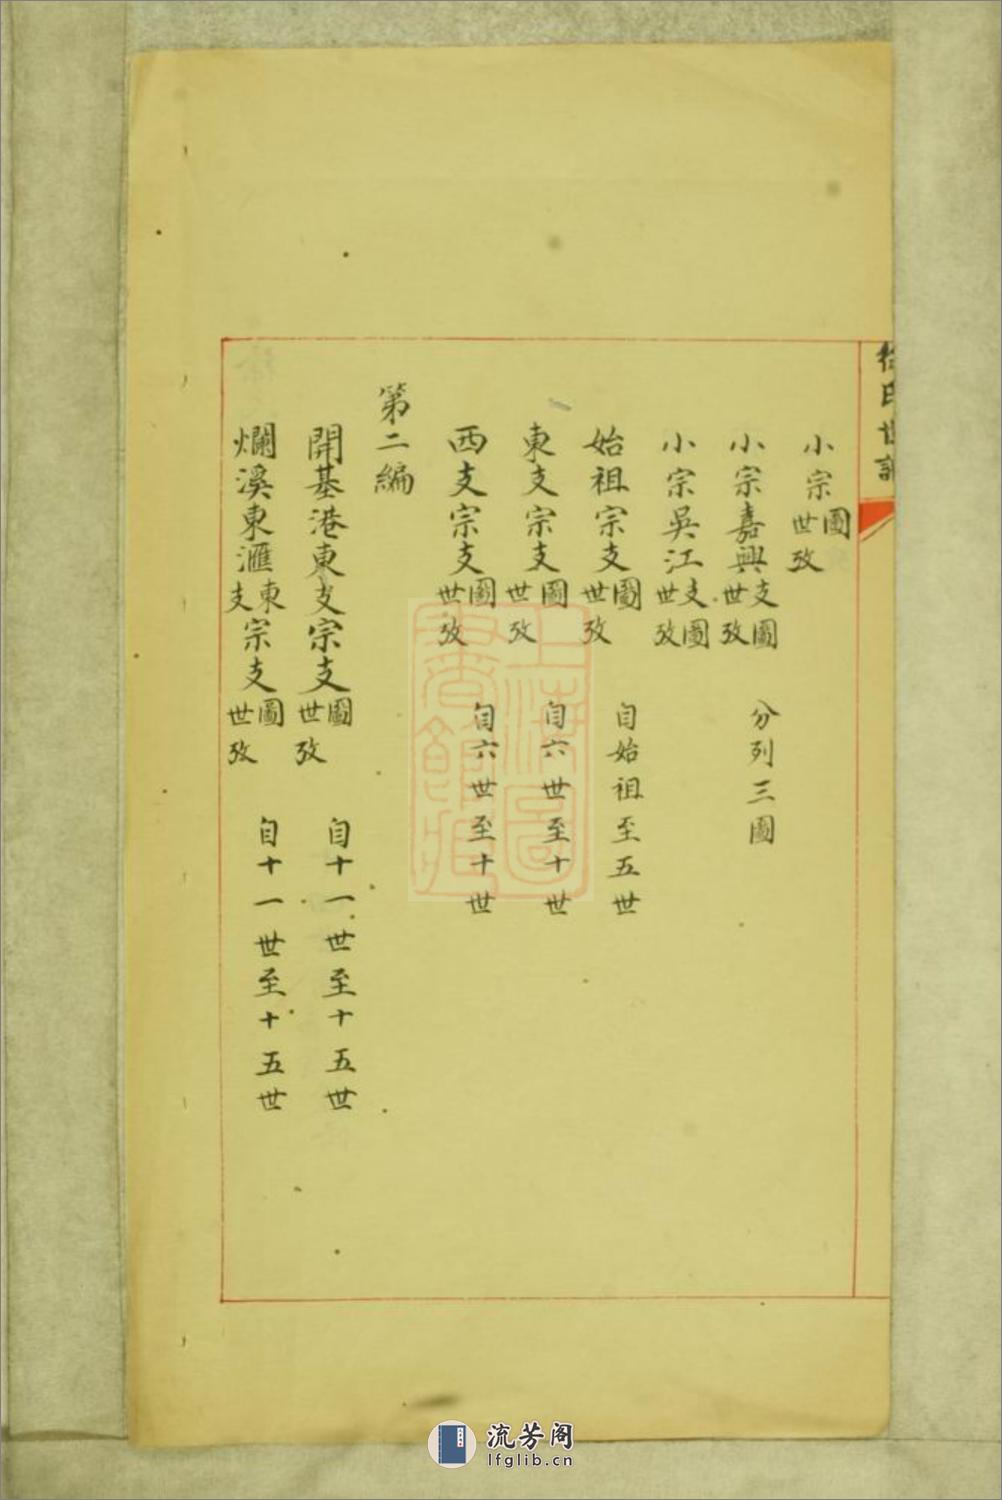 徐氏世譜
小宗圖世攷
小宗嘉興支圖世攷　分列三圖
小宗吳江支圖世攷
始祖宗支圖世攷　自始祖至五世
東支宗支圖世攷　自六世至十世
西支宗支圖世攷　自六世至十世
第二編
開基港東支宗支圖世攷　自十一世至十五世
爛溪東滙東支宗支圖世攷　自十一世至十五世
上海圖書館藏
流芳阁
lfglib.cn